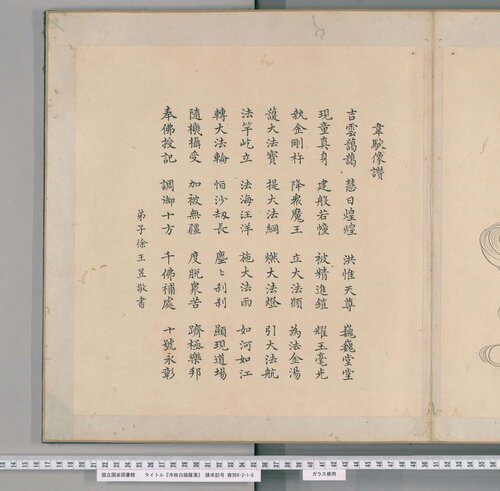 韋馱像讚
吉雲靄靄 慧日煌煌 洪惟天尊 巍巍堂堂
現童真身 建般若幢 被精進鎧 耀玉毫光
執金剛杵 降衆魔王 立大法願 為法金湯
護大法寶 提大法綱 燃大法燈 引大法航
法竿屹立 法海汪洋 施大法雨 如河如江
轉大法輪 恒沙劫長 塵〻剎剎 顯現道場
隨機攝受 加被無疆 度脫衆苦 躋極樂邦
奉佛授記 調御十方 千佛補處 十號永彰
弟子徐王昱敬書
国立国会図書館 タイトル『冷枚白描羅漢』 請求記号 寄別8-2-1-8
ガラス使用